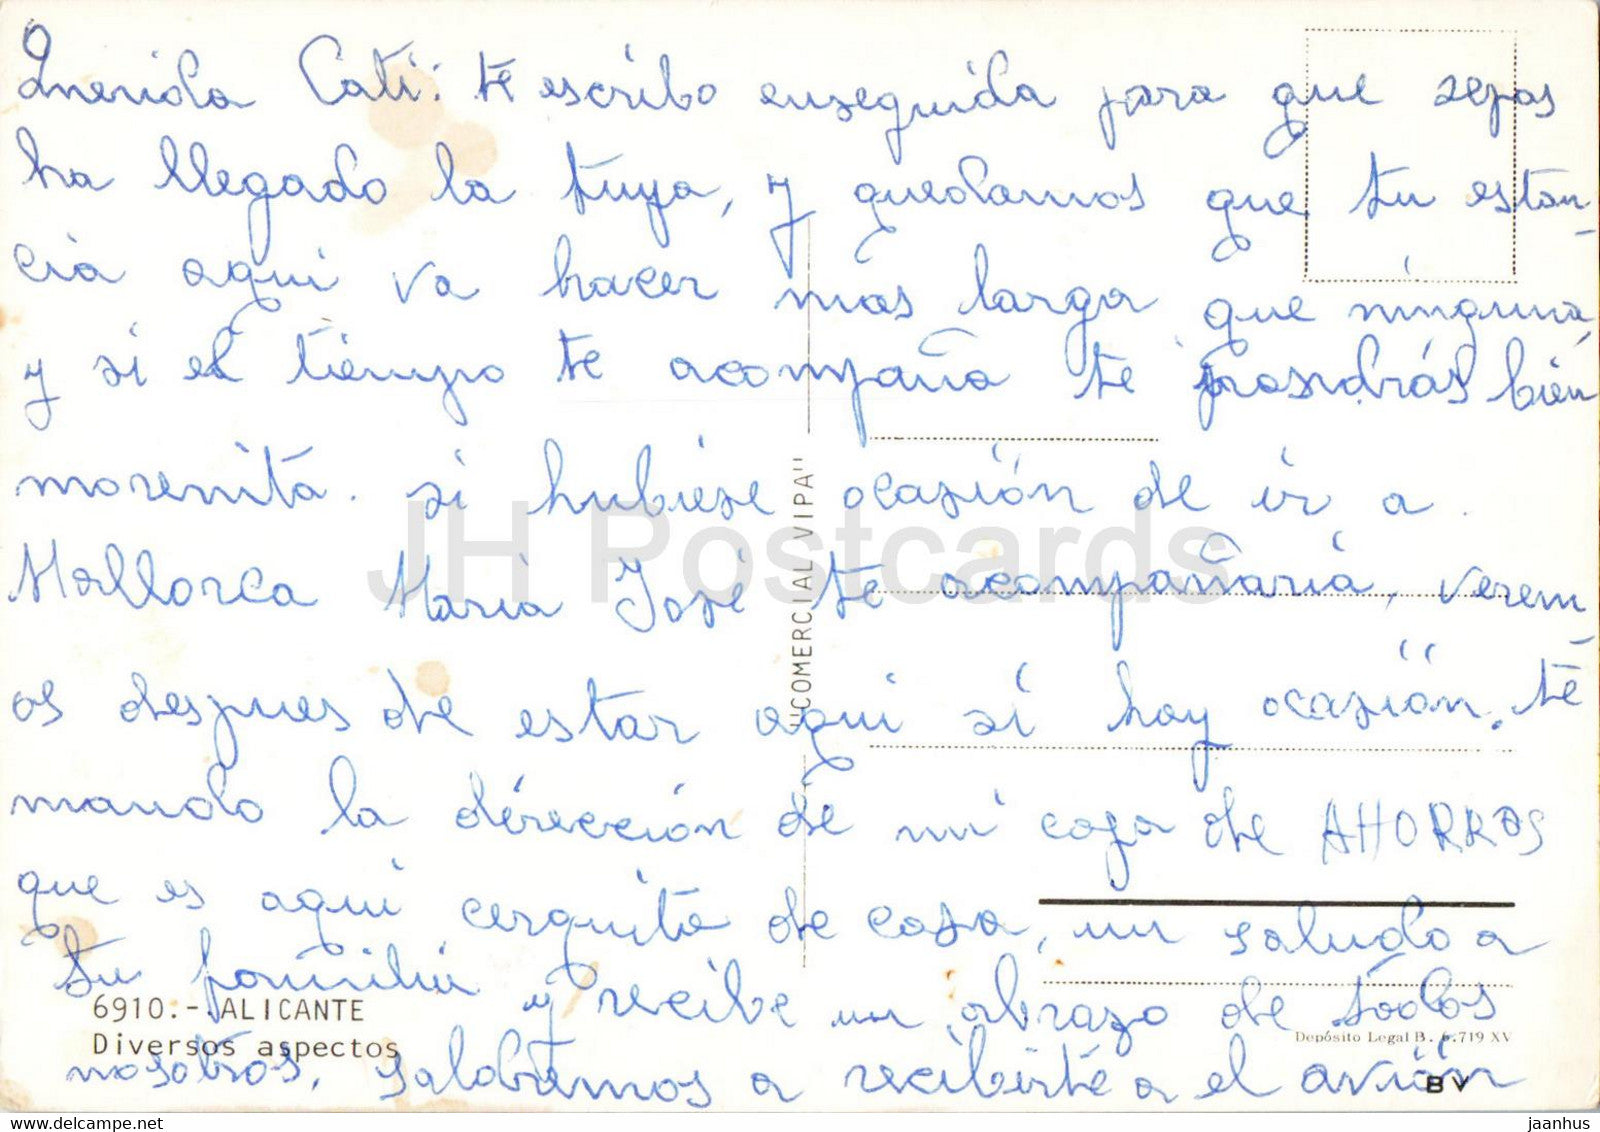 Querida Cati: te escribo enseguida para que sepas
ha llegado la tuya, y quedamos que tu estan-
cia aqui va hacer mas larga que ninguna,
y si el tiempo te acompaña te pondrás bien
morenita. si hubiese ocasión de ir a
Mallorca Maria José te acompañaria, verem
os despues de estar aqui si hay ocasión. te
mando la dirección de mi caja de AHORROS
que es aqui cerquita de casa, un saludo a
tu familia y recibe un abrazo de todos
nosotros, saldremos a recibirte a el avión
"COMERCIAL VIPA"
6910.- ALICANTE
Diversos aspectos
Depósito Legal B. 6.719 XV
BV
JH Postcards
www.delcampe.net
jaanhus